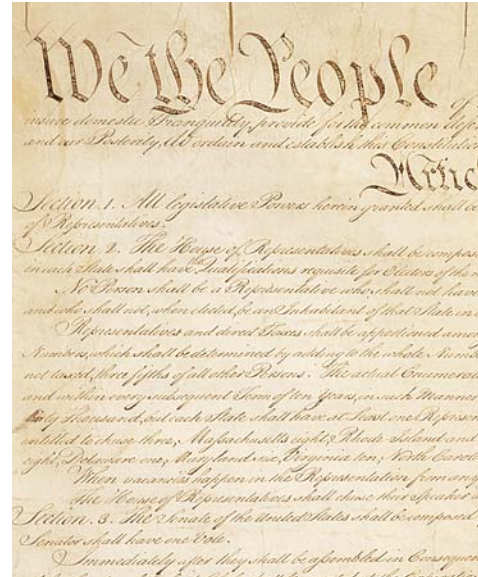 We the People of
insure domestic Tranquility, provide for the common defe
and our Posterity, do ordain and establish this Constitution
Artic
Section. 1. All legislative Powers herein granted shall be
of Representatives.
Section. 2. The House of Representatives shall be compose
in each State shall have Qualifications requisite for Electors of the m
No Person shall be a Representative who shall not have
and who shall not, when elected, be an Inhabitant of that State in
Representatives and direct Taxes shall be apportioned amon
Numbers, which shall be determined by adding to the whole Numb
not taxed, three fifths of all other Persons. The actual Enumerat
and within every subsequent Term of ten Years, in such Manner
thirty Thousand, but each State shall have at Least one Represen
entitled to chuse three, Massachusetts eight, Rhode-Island and
eight, Delaware one, Maryland six, Virginia ten, North Caroli
When vacancies happen in the Representation from any
The House of Representatives shall chuse their Speaker a
Section. 3. The Senate of the United States shall be composed
Senator shall have one Vote.
Immediately after they shall be assembled in Consequen